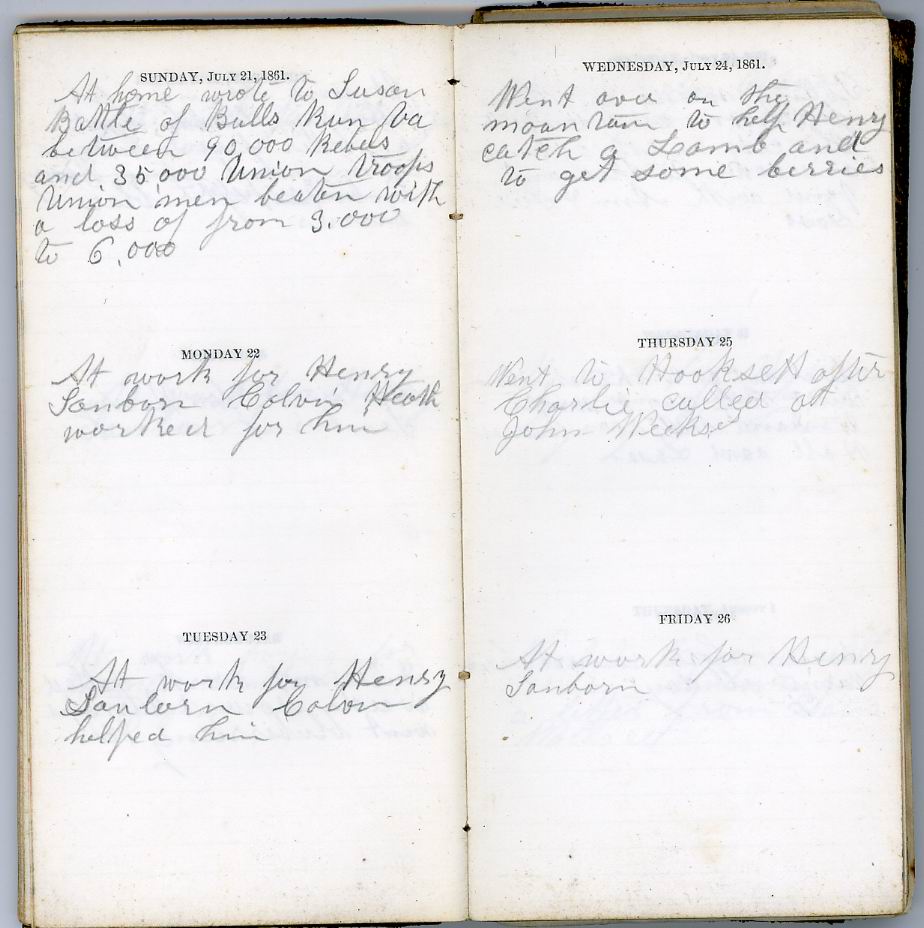 SUNDAY, JULY 21, 1861.
At home wrote to Susan
Battle of Bulls Run Va
between 90,000 Rebels
and 35,000 Union troops
Union men beaten with
a loss of from 3.000
to 6,000
MONDAY 22
At work for Henry
Sanborn Colvin Heath
worked for him
TUESDAY 23
At work for Henry
Sanborn Colvin
helped him
WEDNESDAY, JULY 24, 1861.
Went over on the
mountain to help Henry
catch a Lamb and
to get some berries
THURSDAY 25
Went to Hooksett after
Charlie called at
John Weeks
FRIDAY 26
At work for Henry
Sanborn